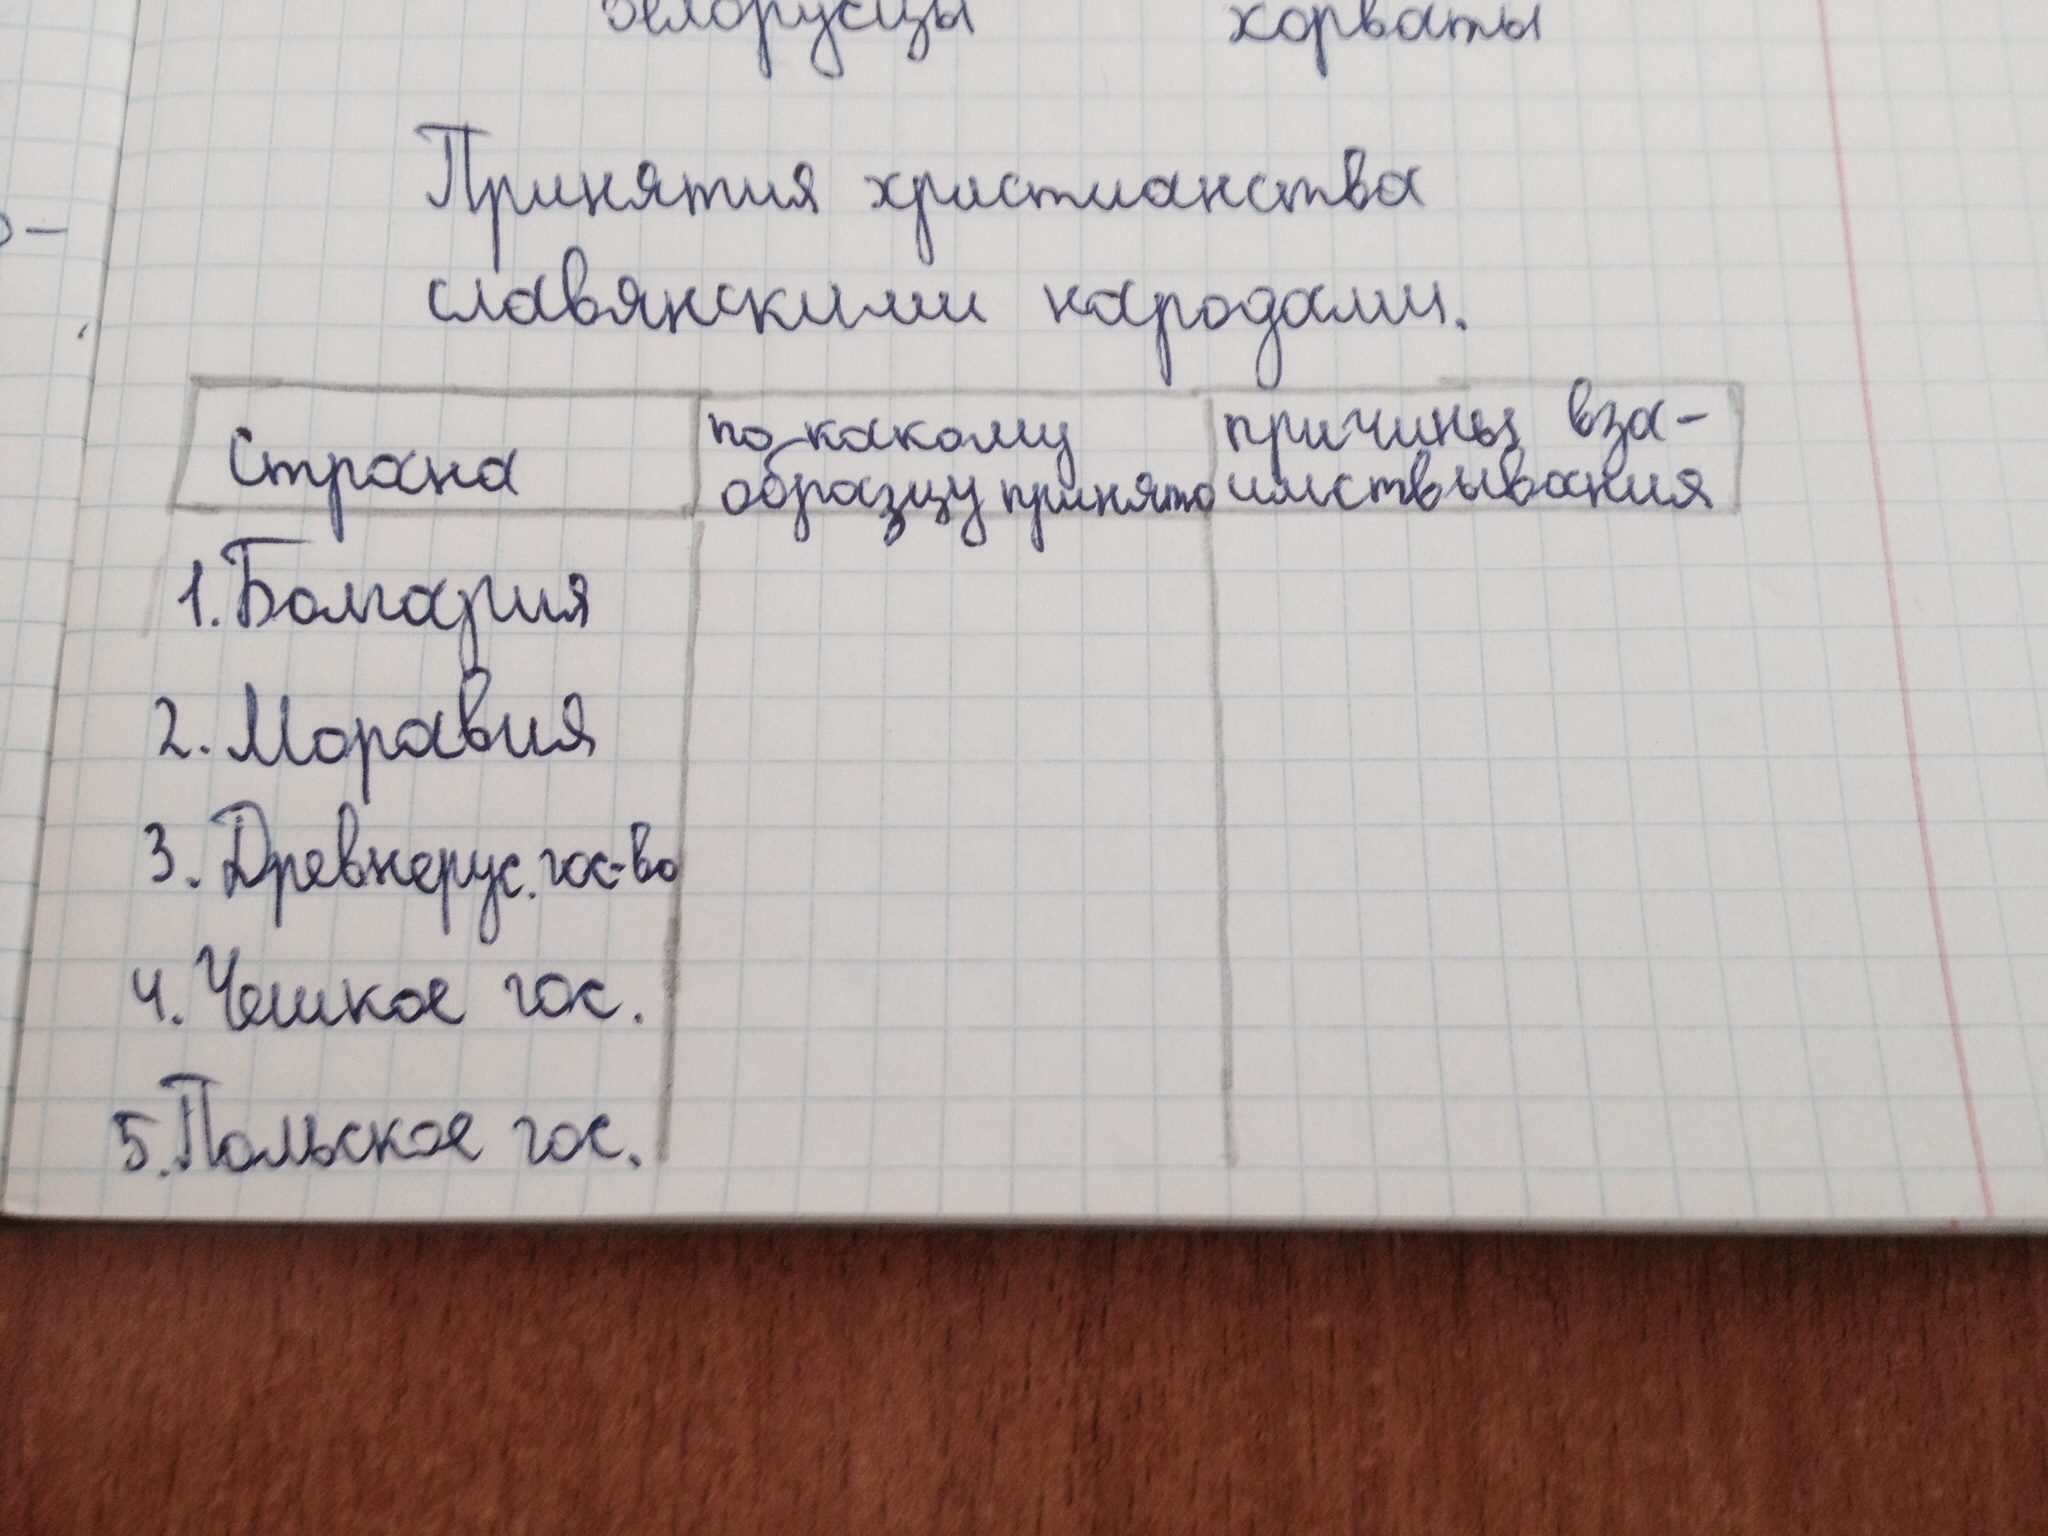 белорусцы хорваты
Принятия христианства
славянскими народами.
Страна
по какому
образцу принято
причины вза-
имствывания
1. Болгария
2. Моравия
3. Древнерус. гос-во
4. Чешкое гос.
5. Польское гос.